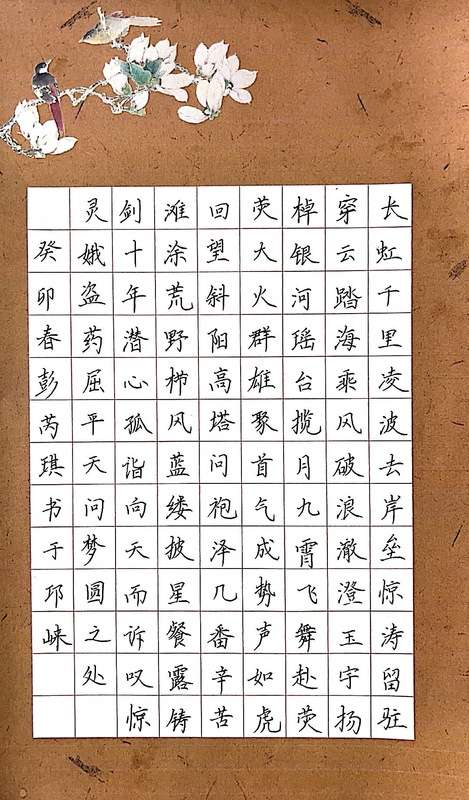 长虹千里凌波去岸垒惊涛留驻
穿云踏海乘风破浪澈澄玉宇扬
棹银河瑶台揽月九霄飞舞赴荧
荧大火群雄聚首气成势声如虎
回望斜阳高塔问袍泽几番辛苦
滩涂荒野栉风蓝缕披星餐露铸
剑十年潜心孤诣向天而诉叹惊
灵娥盗药屈平天问梦圆之处
癸卯春彭芮琪书于邛崃